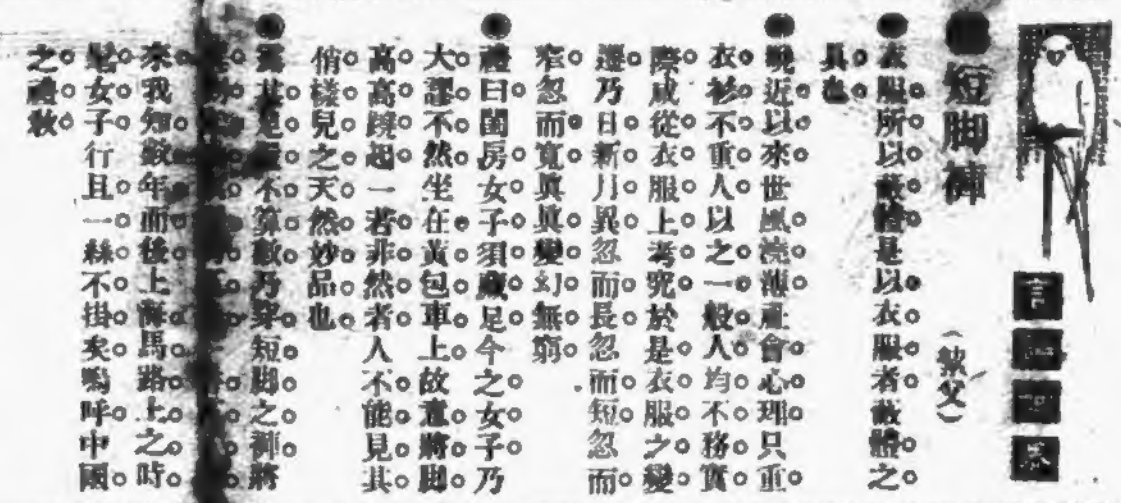 短脚褲
衣服所以蔽體是以衣服者蔽體之
具也
晚近以來世風澆薄社會心理只重
衣衫不重人以之一般人均不務實
際咸從衣服上考究於是衣服之變
遷乃日新月異忽而長忽而短忽而
窄忽而寬眞眞變幻無窮
禮曰閨房女子須藏足今之女子乃
大謬不然坐在黃包車上故意將脚
高高蹺起一若非然者人不能見其
俏樣兒之天然妙品也
不算數乃穿短脚之褲將
來我知數年而後上海馬路上之時
髦女子行且一絲不掛矣嗚呼中國
之禮敎